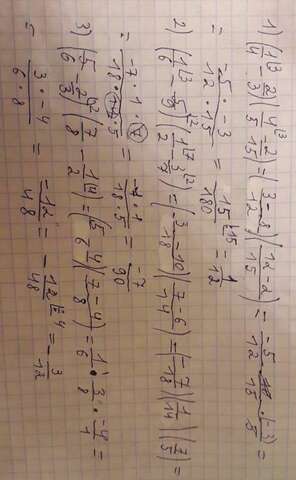 1) (1/4 - 2/3)(4/5 - 2/15) = (3-8/12)(12-2/15) = -5/12 · 10/15 · (-3)/5
= -5 · -3 / 12 · 15 = 15/180 = 1/12
2) (1/6 - 5/9)(1/2 - 3/7) = (3-10/18)(7-6/14) = (-7/18)(1/14)(7/5) =
= -7 · 1 · 7 / 18 · 14 · 5 = -1 · 1 / 18 · 5 = -7/90
3) (5/6 - 2/3)(7/8 - 1/2) = (5-4/6)(7-4/8) = 1/6 · 3/8 · -4/1 =
= 3 · -4 / 6 · 8 = -12/48 = -12/48 = -3/12